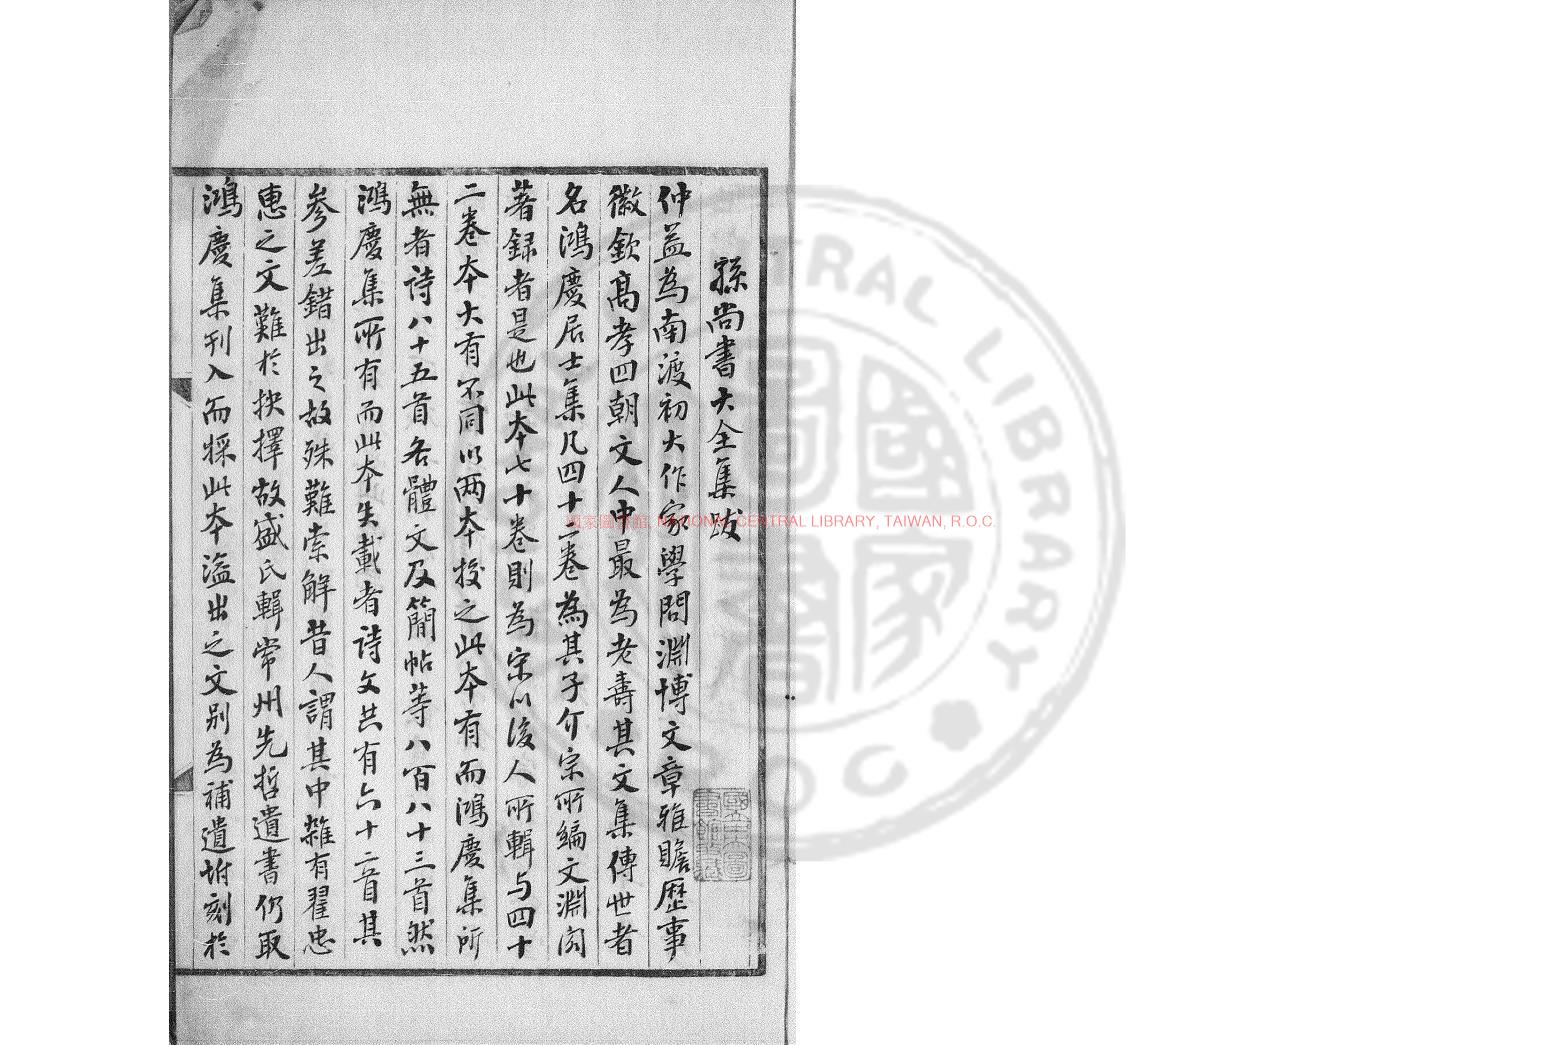 孫尚書大全集跋
仲益為南渡初大作家學問淵博文章雅贍歷事
徽欽高孝四朝文人中最為老壽其文集傳世者
名鴻慶居士集凡四十二卷為其子介宗所編文淵閣
著録者是也此本七十卷則為宋以後人所輯与四十
二卷本大有不同以两本挍之此本有而鴻慶集所
無者詩八十五首各體文及簡帖等八百八十三首然
鴻慶集所有而此本失載者詩文共有六十二首其
參差錯出之故殊難索解昔人謂其中雜有翟忠
惠之文難於抉擇故盛氏輯常州先哲遺書仍取
鴻慶集刊入而採此本溢出之文别為補遺坿刻於
國家圖書館, NATIONAL CENTRAL LIBRARY, TAIWAN, R.O.C.
TRAL LIBRARY
R O C
國家圖書館